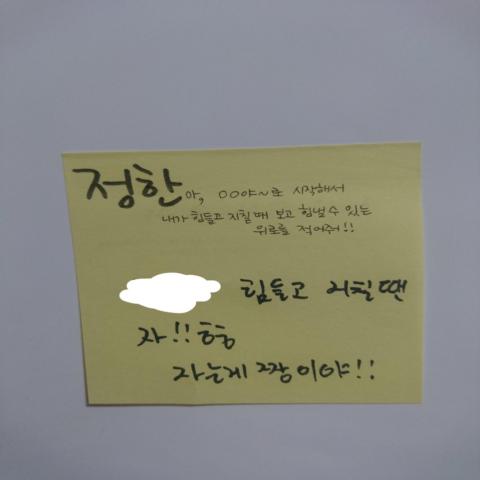 정한아, ○○야~로 시작해서
내가 힘들고 지칠 때 보고 힘낼 수 있는
위로를 적어줘!!
힘들고 지칠땐
자!! 흐흫
자는게 짱이야!!